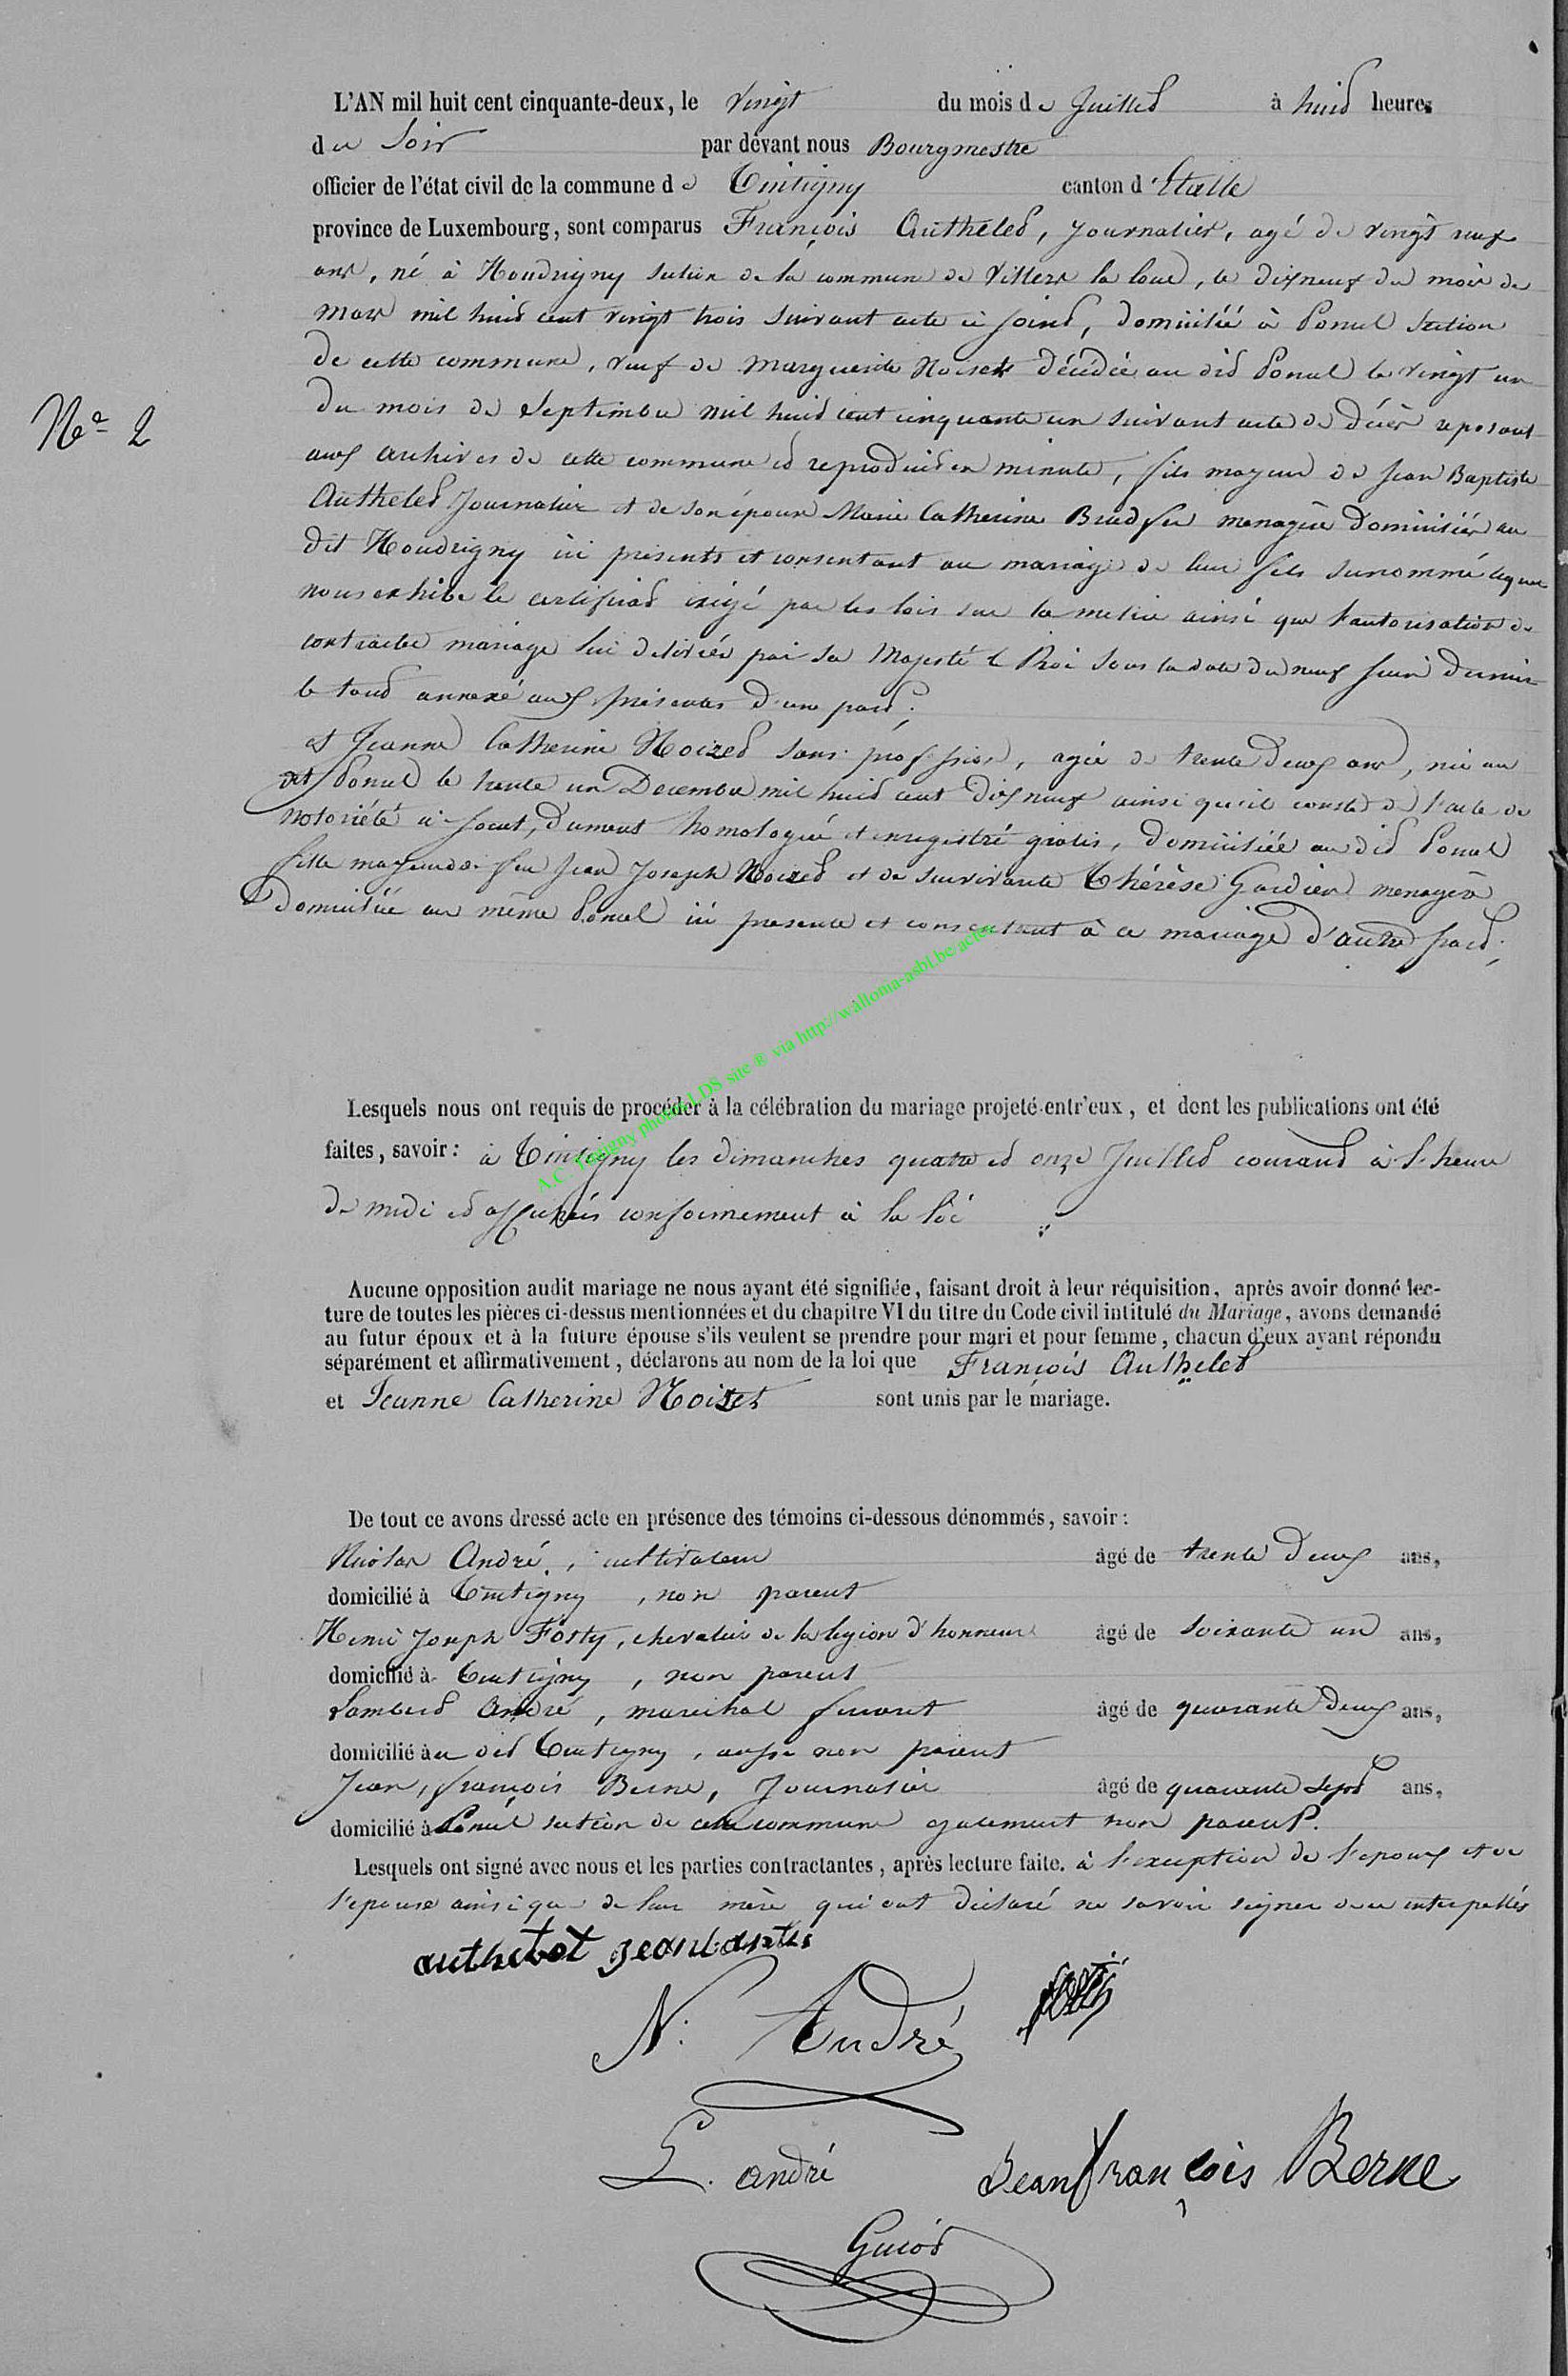 L'AN mil huit cent cinquante-deux, le vingt du mois de Juillet à huit heures
du Soir par devant nous Bourgmestre
officier de l'état civil de la commune de Tintigny canton d'Etalle
province de Luxembourg, sont comparus François Authelet, journalier, agé de vingt neuf
ans, né à Houdrigny section de la commune de Villers la loue, le dixneuf du mois de
mars mil huit cent vingt trois suivant acte ci joint, domicilié à Poncel Section
de cette commune, veuf de Marguerite Noizet décédée au dit Poncel le vingt un
N° 2
du mois de Septembre mil huit cent cinquante un suivant acte de décès reposant
aux archives de cette commune et reproduit en minute, fils majeur de Jean Baptiste
Authelet Journalier et de son épouse Marie Catherine menagère domiciliés au
dit Houdrigny ici présents et consentant au mariage de leur fils surnommé lequel
nous exhibe le certificat exigé par les lois sur la milice ainsi que l'autorisation de
contracter mariage lui délivrée par sa Majesté le Roi sous la date du neuf juin dernier
le tout annexé aux présentes d'une part;
et Jeanne Catherine Noizet sans profession, agée de trente deux ans, née au
dit Poncel le trente un Decembre mil huit cent dix neuf ainsi qu'il conste de l'acte de
notoriété ci-joint, dument homologué et enregistré gratis, domiciliée au dit Poncel
fille majeure de feu Jean Joseph Noized et de survivante Thérèse menagère
domiciliée au même Poncel ici presente et consentant à ce mariage d'autre part;
A.C. Tintigny photos LDS site ® via http://wallonia-asbl.be/actes
Lesquels nous ont requis de procéder à la célébration du mariage projeté entr'eux, et dont les publications ont été
faites, savoir: à Tintigny les dimanches quatre et onze Juillet courant à l'heure
de midi et affichées conformement à la loi
Aucune opposition audit mariage ne nous ayant été signifiée, faisant droit à leur réquisition, après avoir donné lec-
ture de toutes les pièces ci-dessus mentionnées et du chapitre VI du titre du Code civil intitulé du Mariage, avons demandé
au futur époux et à la future épouse s'ils veulent se prendre pour mari et pour femme, chacun d'eux ayant répondu
séparément et affirmativement, déclarons au nom de la loi que François Authelet
et Jeanne Catherine Noizet sont unis par le mariage.
De tout ce avons dressé acte en présence des témoins ci-dessous dénommés, savoir:
Nicolas André, cultivateur âgé de trente deux ans,
domicilié à Tintigny, non parent
Henri Joseph Fosty, chevalier de la légion d'honneur âgé de soixante un ans,
domicilié à Tintigny, non parent
Lambert André, marechal ferrant âgé de quarante deux ans,
domicilié au dit Tintigny, aussi non parent
Jean, françois Berne, Journalier âgé de quarante sept ans,
domicilié à Poncel section de cette commune egalement non parent.
Lesquels ont signé avec nous et les parties contractantes, après lecture faite. à l'exception de l'epoux et de
l'epouse ainsi que de leur mère qui ont déclaré ne savoir signer de ce interpellés
authelet
N. André fosty
L. andré Jean françois Berne
Guiot